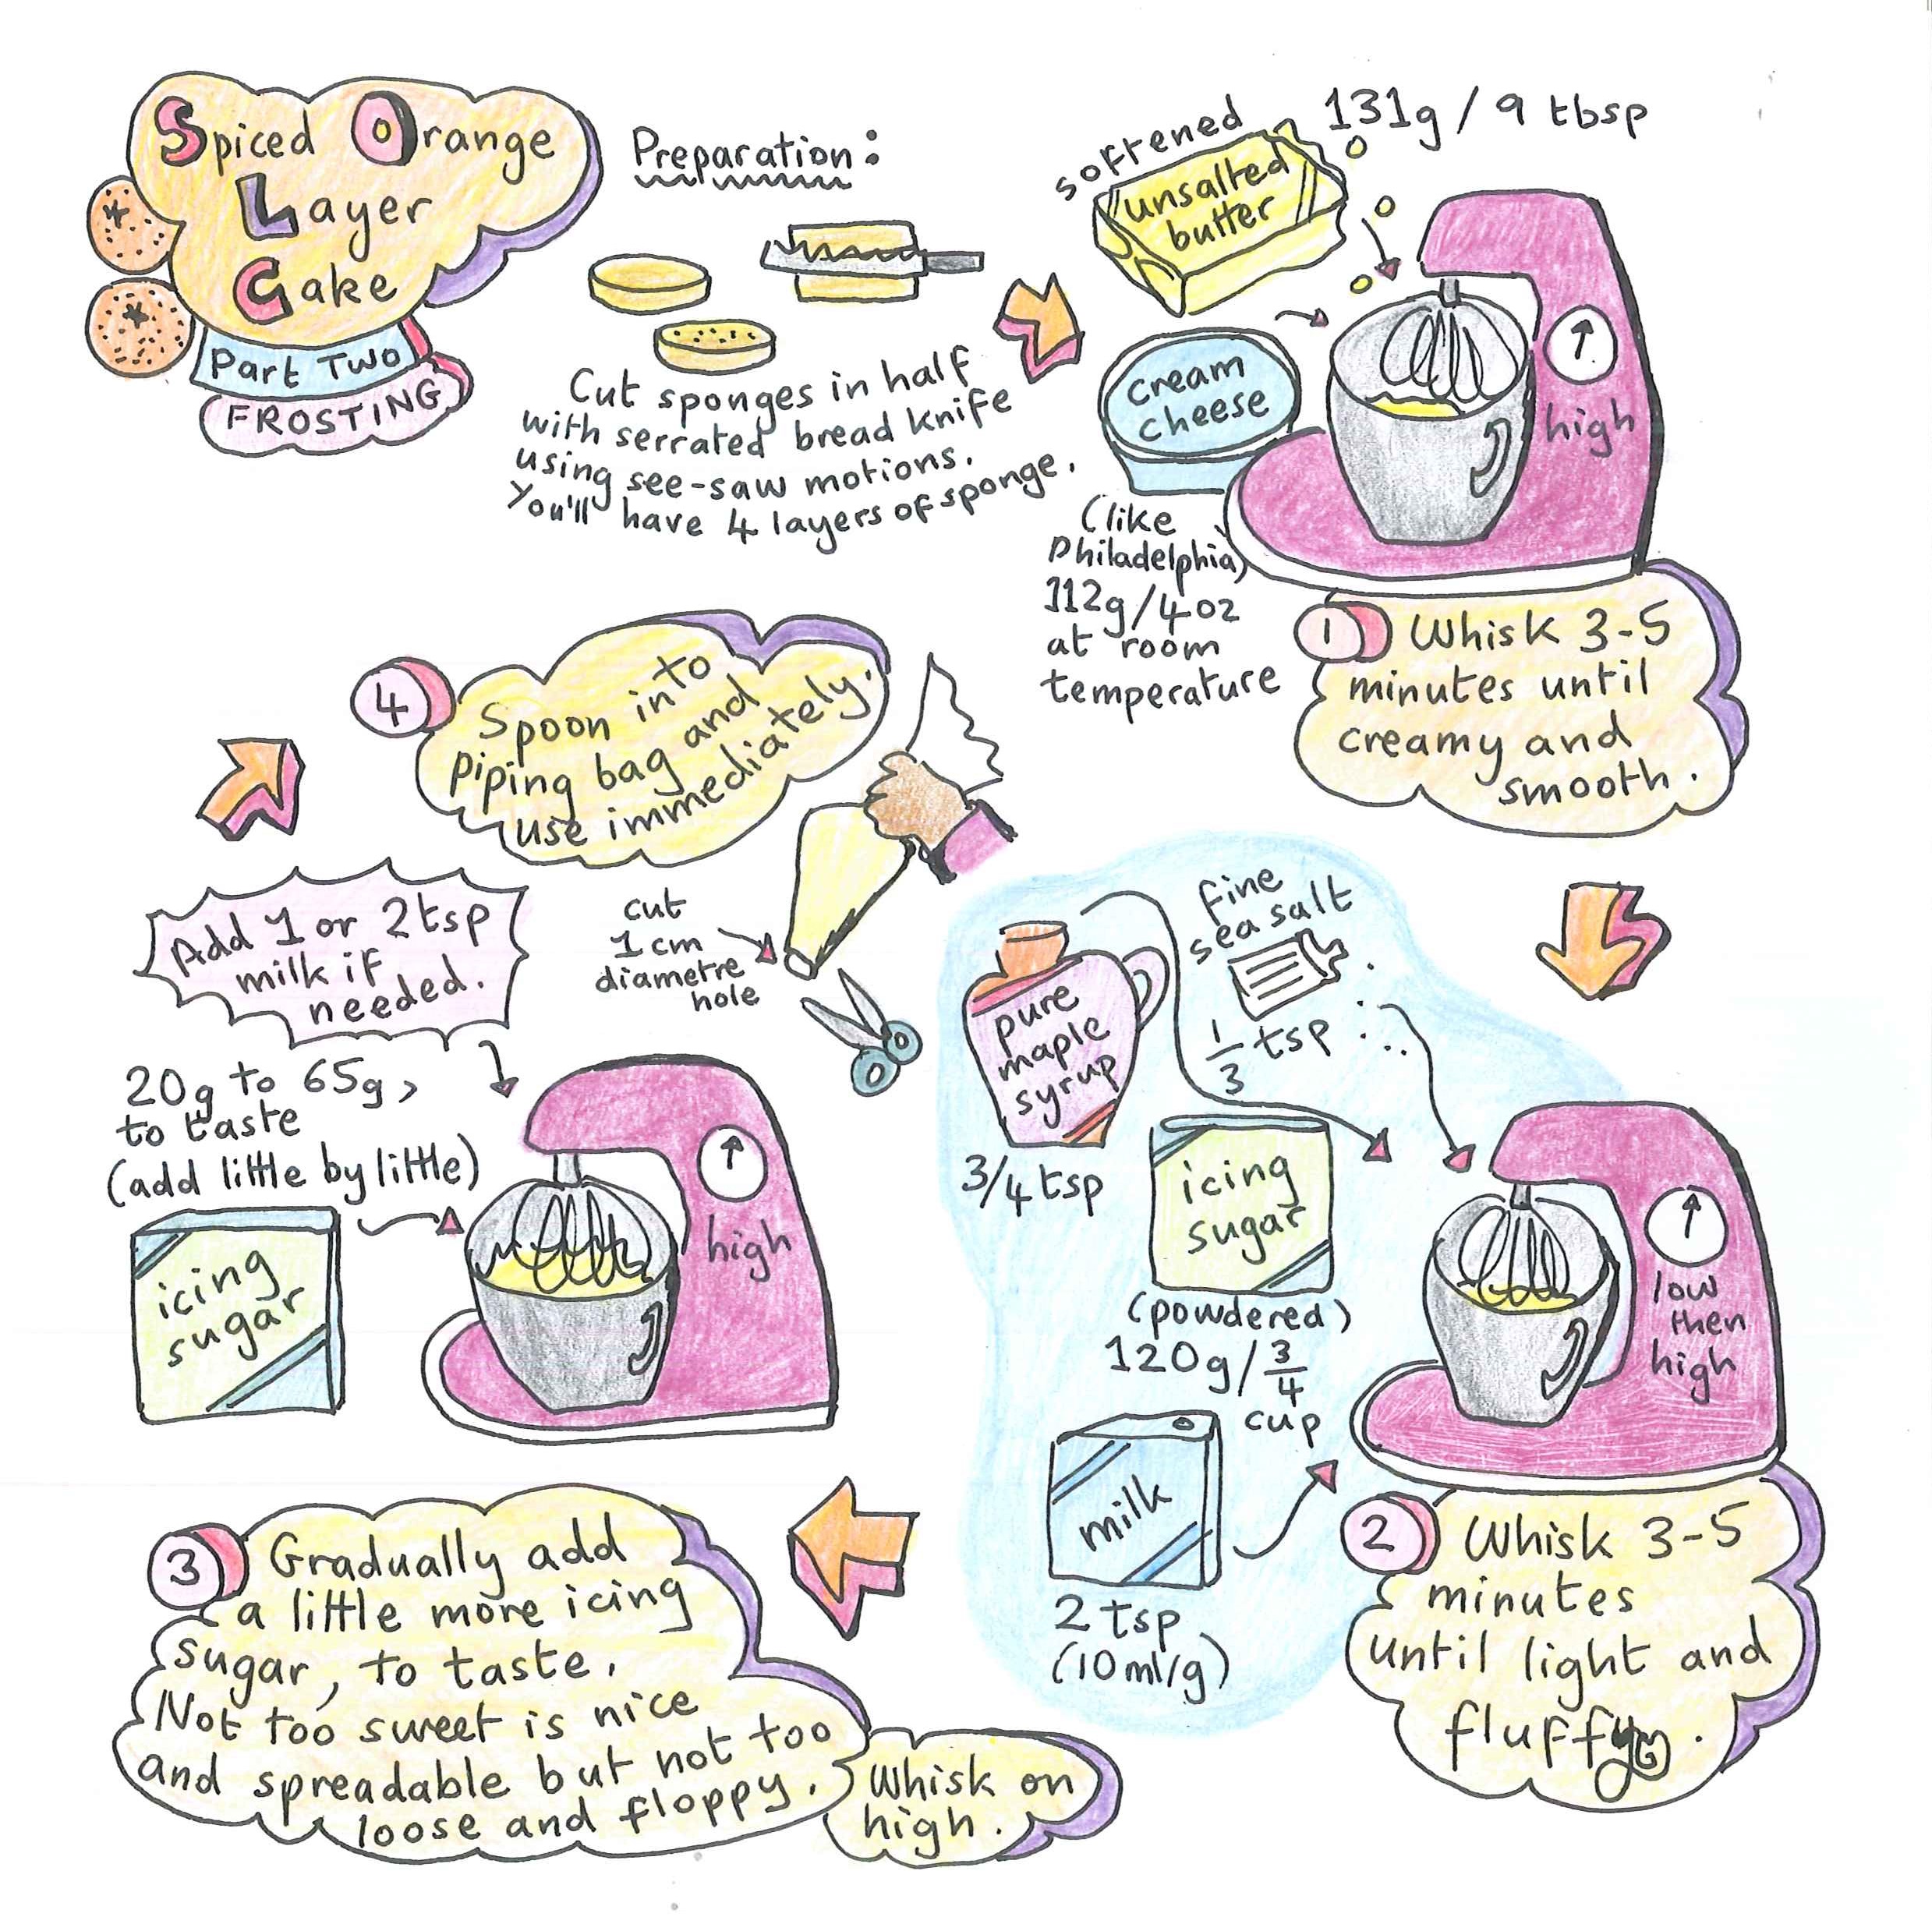 Spiced Orange
Layer
Cake
Part Two
FROSTING
Preparation:
Cut sponges in half
with serrated bread knife
using see-saw motions.
You'll have 4 layers of sponge.
softened
131g / 9 tbsp
unsalted
butter
cream
cheese
(like
Philadelphia)
112g/4oz
at room
temperature
high
1 Whisk 3-5
minutes until
creamy and
smooth.
fine
sea salt
1/3 tsp
pure
maple
syrup
3/4 tsp
icing
sugar
(powdered)
120g/3/4
cup
milk
2 tsp
(10ml/g)
low
then
high
2 Whisk 3-5
minutes
until light and
fluffy.
3 Gradually add
a little more icing
sugar, to taste.
Not too sweet is nice
and spreadable but not too
loose and floppy.
Whisk on
high.
Add 1 or 2 tsp
milk if
needed.
20g to 65g,
to taste
(add little by little)
icing
sugar
high
4 Spoon into
piping bag and
use immediately.
cut
1cm
diametre
hole